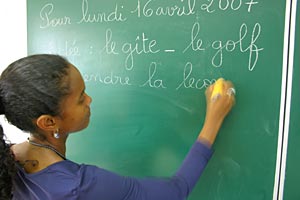 Pour lundi 16 avril 2007
: le gîte _ le golf
la leço